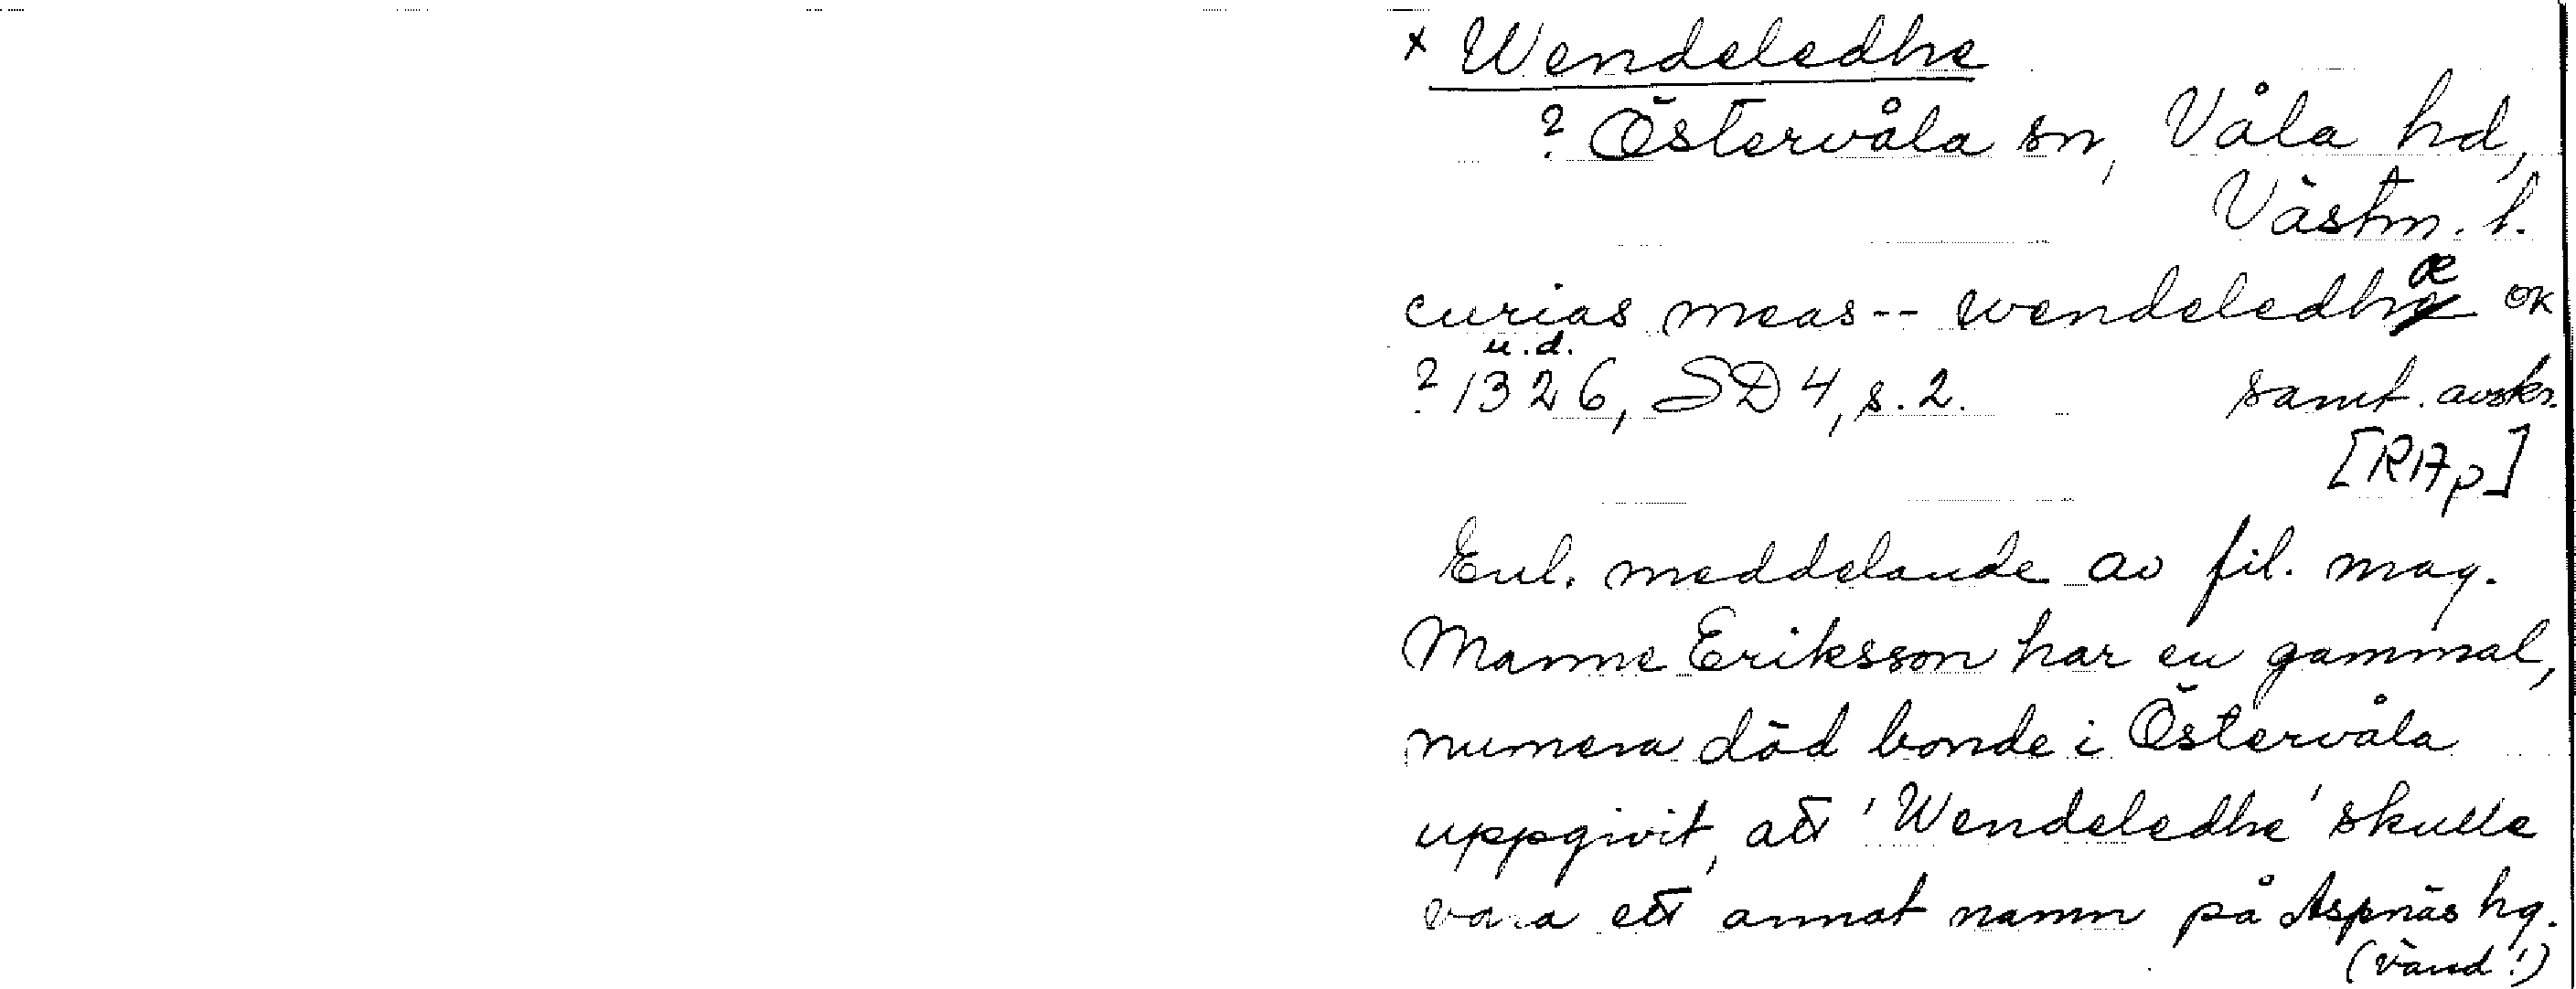 x Wendeledhe
? Östervåla sn, Våla hd,
Västm. l.
curias meas -- wendeledhæ OK
u.d.
? 1326, SD 4, s. 2. samt. avskr.
[RAp]
Enl. meddelande av fil. mag.
Manne Eriksson har en gammal,
numera död bonde i Östervåla
uppgivit, att 'Wendeledhe' skulle
vara ett annat namn på Aspnäs hg.
(Vänd!)